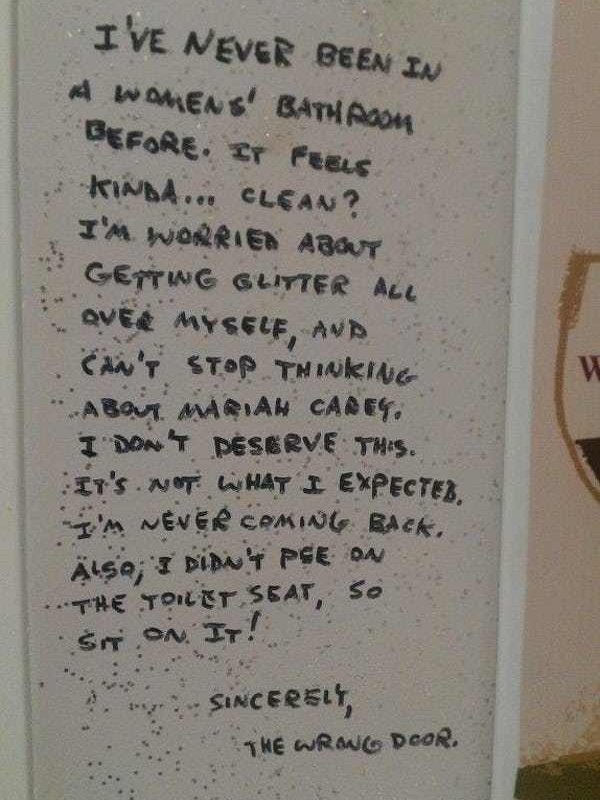 I'VE NEVER BEEN IN
A WOMENS' BATHROOM
BEFORE. IT FEELS
KINDA... CLEAN?
I'M WORRIED ABOUT
GETTING GLITTER ALL
OVER MYSELF, AND
CAN'T STOP THINKING
ABOUT MARIAH CAREY.
I DON'T DESERVE THIS.
IT'S NOT WHAT I EXPECTED.
I'M NEVER COMING BACK.
ALSO, I DIDN'T PEE ON
THE TOILET SEAT, SO
SIT ON IT!
SINCERELY,
THE WRONG DOOR.
W